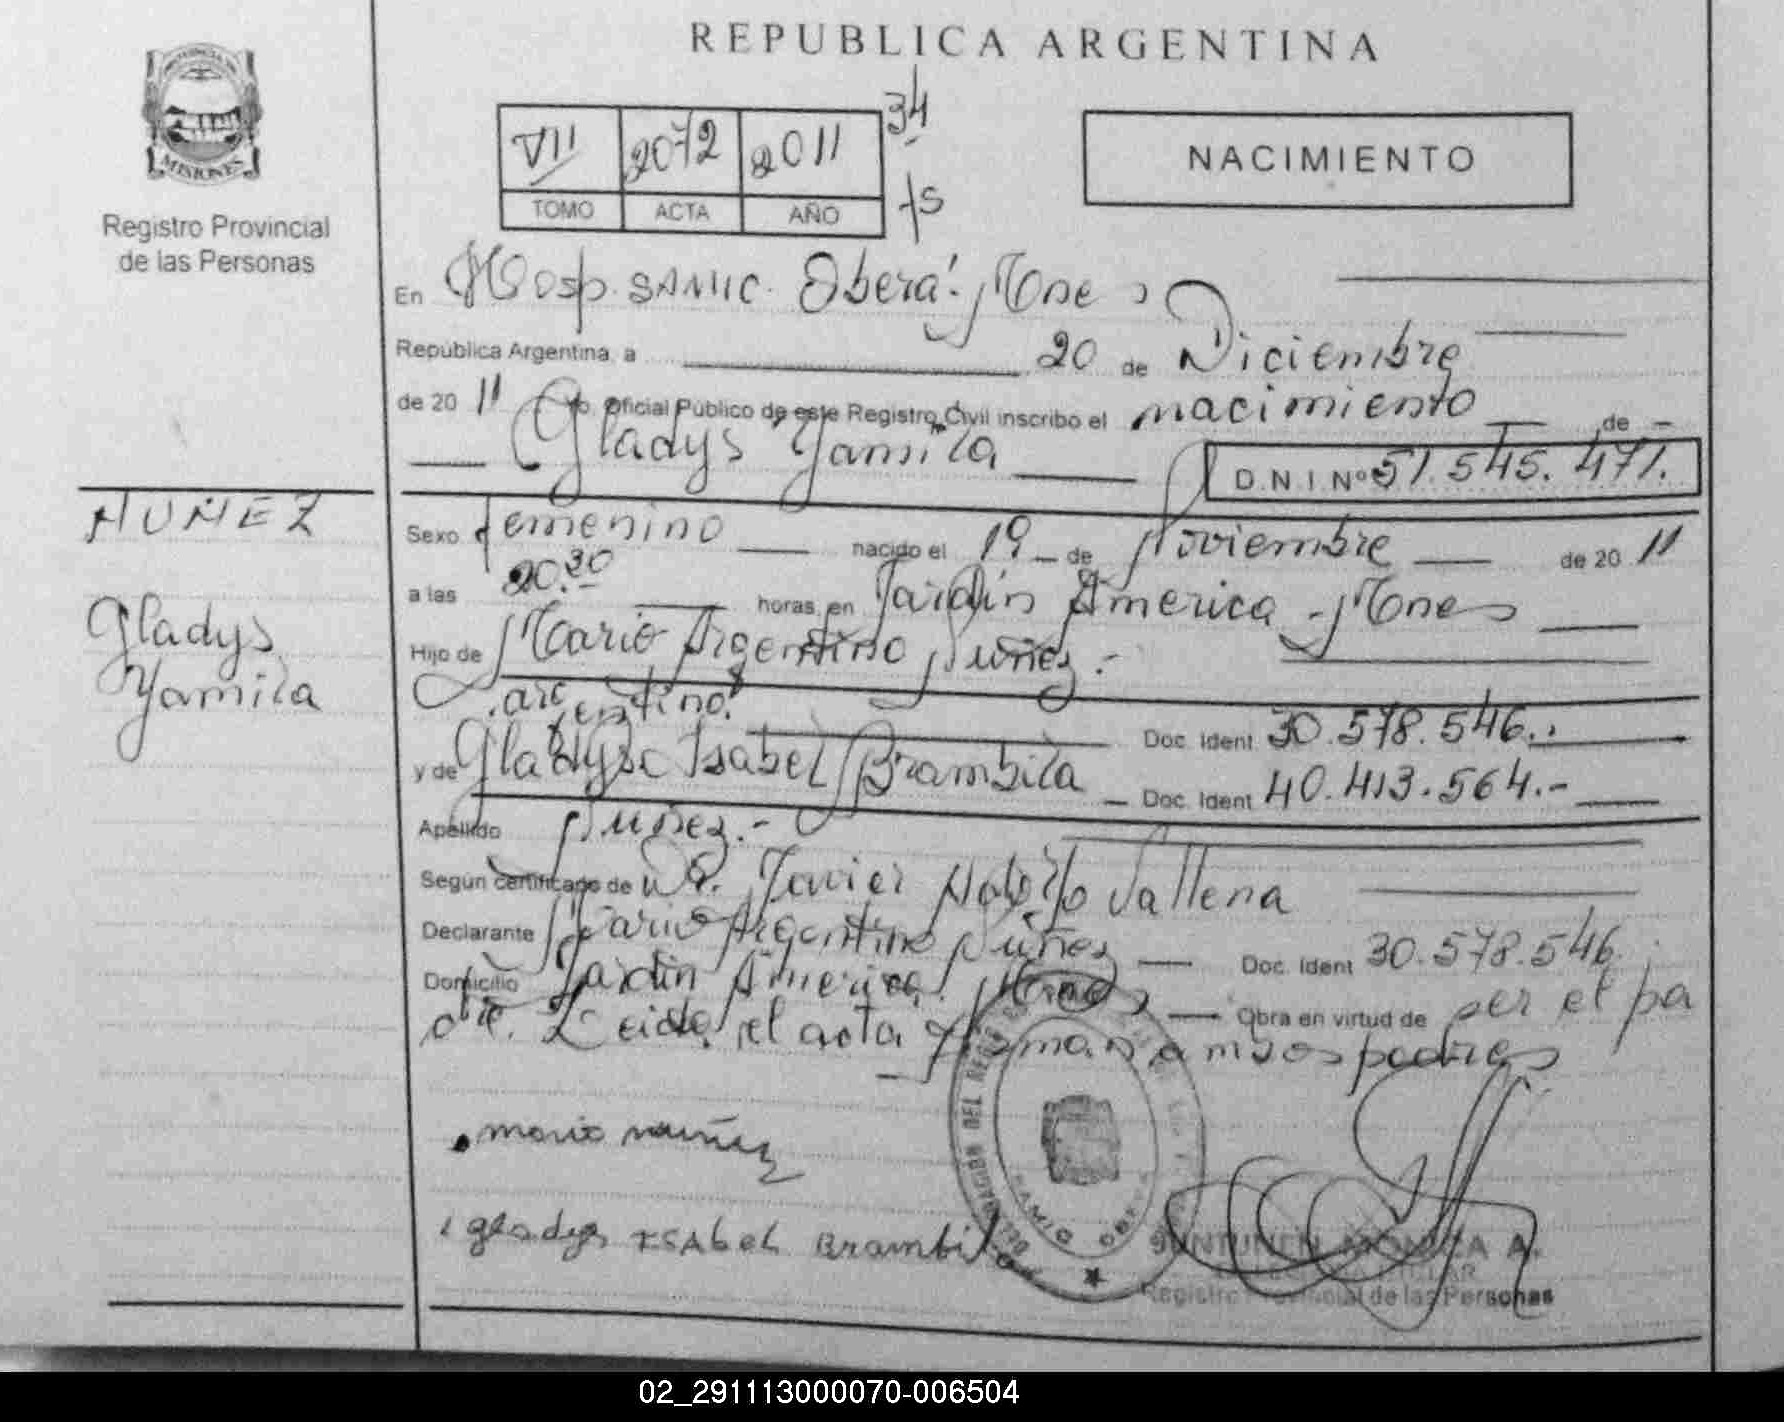 REPUBLICA ARGENTINA
MISIONES
Registro Provincial
de las Personas
VII 2072 2011 34
TOMO ACTA AÑO
NACIMIENTO
En Hosp. SAMIC. Oberá. Mnes
República Argentina, a 20 de Diciembre
de 20 11 Yo, Oficial Público de este Registro Civil inscribo el nacimiento de
Gladys Yamila
D.N.I.Nº 51.545.471.
NUÑEZ
Gladys
Yamila
Sexo femenino nacido el 19 de Noviembre de 20 11
a las 20.30 horas, en Jardín América - Mnes
Hijo de Mario Argentino Nuñez.-
argentino. Doc. Ident 30.578.546.
y de Gladys Isabel Brambila Doc. Ident 40.413.564.-
Apellido Nuñez.-
Según certificado de Dr. Javier Adolfo
Declarante Mario Argentino Nuñez Doc. Ident 30.578.546.
Domicilio Jardín América. Mnes Obra en virtud de ser el pa
dre. Leida el acta firman ambos padres
mario nuñez
gladys ISAbel Brambil
MONICA A.
Registro Provincial de las Personas
02_291113000070-006504